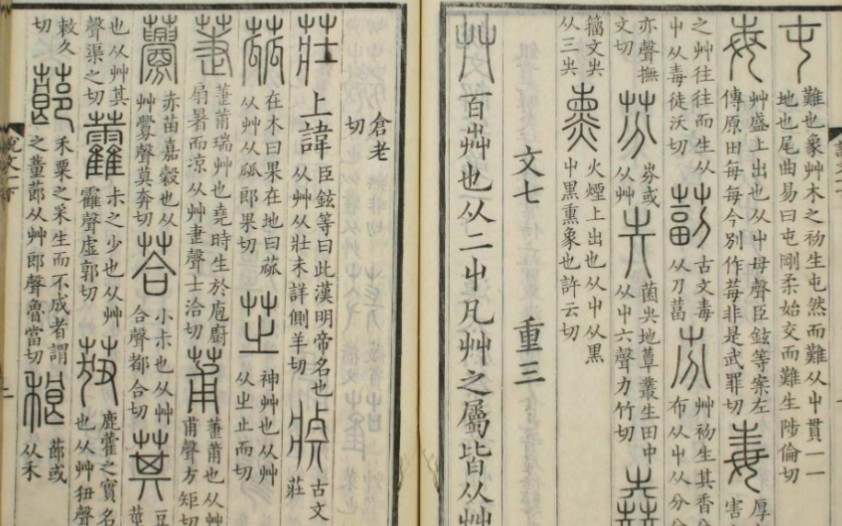 屯
難也象艸木之初生屯然而難从屮貫一一
地也尾曲易曰屯剛柔始交而難生陟倫切
每
艸盛上出也从屮母聲臣鉉等案左
傳原田每每今別作莓非是武罪切
毒
厚
害
之艸往往而生从
屮从毒徒沃切
古文毒
从刀葍
艸初生其香分
布从屮从分
亦聲撫
文切
芬
芬或
从艸
圥
菌圥地蕈叢生田中
从屮六聲力竹切
籒文圥
从三圥
熏
火煙上出也从屮从黑
屮黑熏象也許云切
文七 重三
艸 百芔也从二屮凡艸之屬皆从艸
說文一下
倉老
切
莊
上諱
臣鉉等曰此漢明帝名也
从艸从壯未詳側羊切
古文
莊
蓏
在木曰果在地曰蓏
从艸从㼌郎果切
芝
神艸也从艸
从㞢止而切
萐
萐莆瑞艸也堯時生於庖廚
扇暑而涼从艸疌聲士洽切
莆
萐莆也从艸
甫聲方矩切
虋
赤苗嘉穀也从
艸釁聲莫奔切
荅
小尗也从艸
合聲都合切
萁
豆
也从艸其
聲渠之切
藿
尗之少也从艸
靃聲虛郭切
莥
鹿藿之實名
也从艸狃聲
敕久
切
蓈
禾粟之采生而不成者謂
之蕫蓈从艸郎聲魯當切
稂
蓈或
从禾